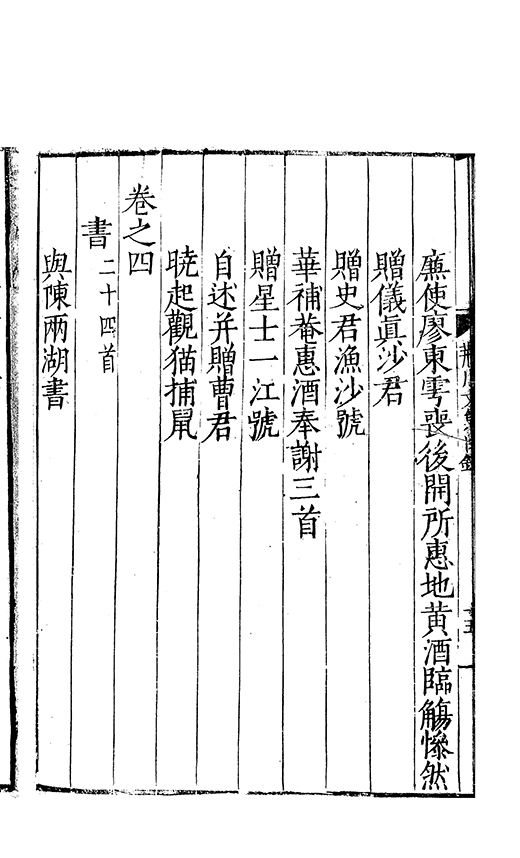 廉使廖東雩喪後開所惠地黄酒臨觴慘然
贈儀真沙君
贈史君漁沙號
華補菴惠酒奉謝三首
贈星士一江號
自述并贈曹君
曉起觀猫捕鼠
卷之四
書二十四首
與陳兩湖書